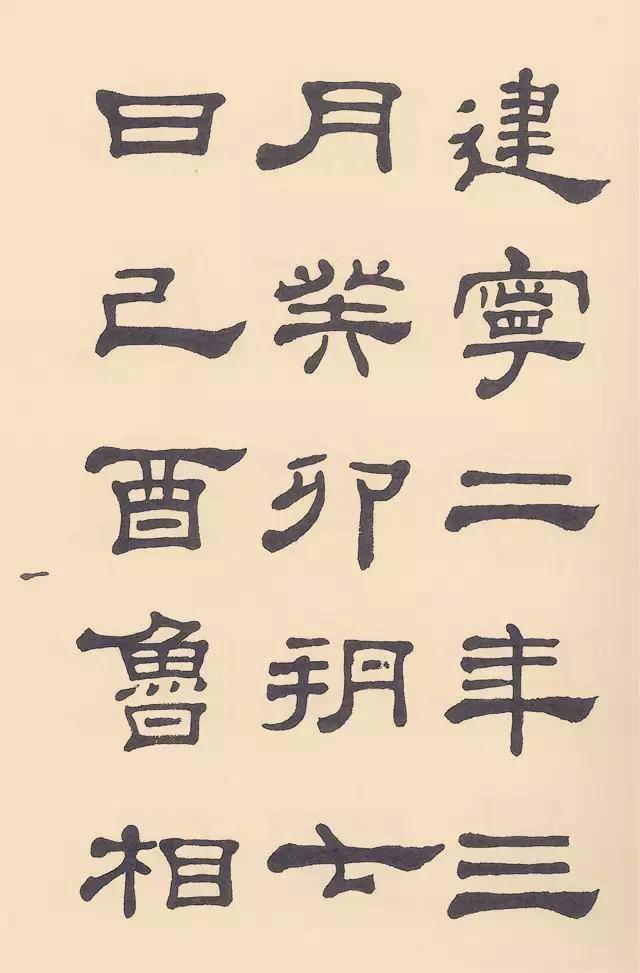 建寧二年三
月癸卯朔七
日己酉魯相
一